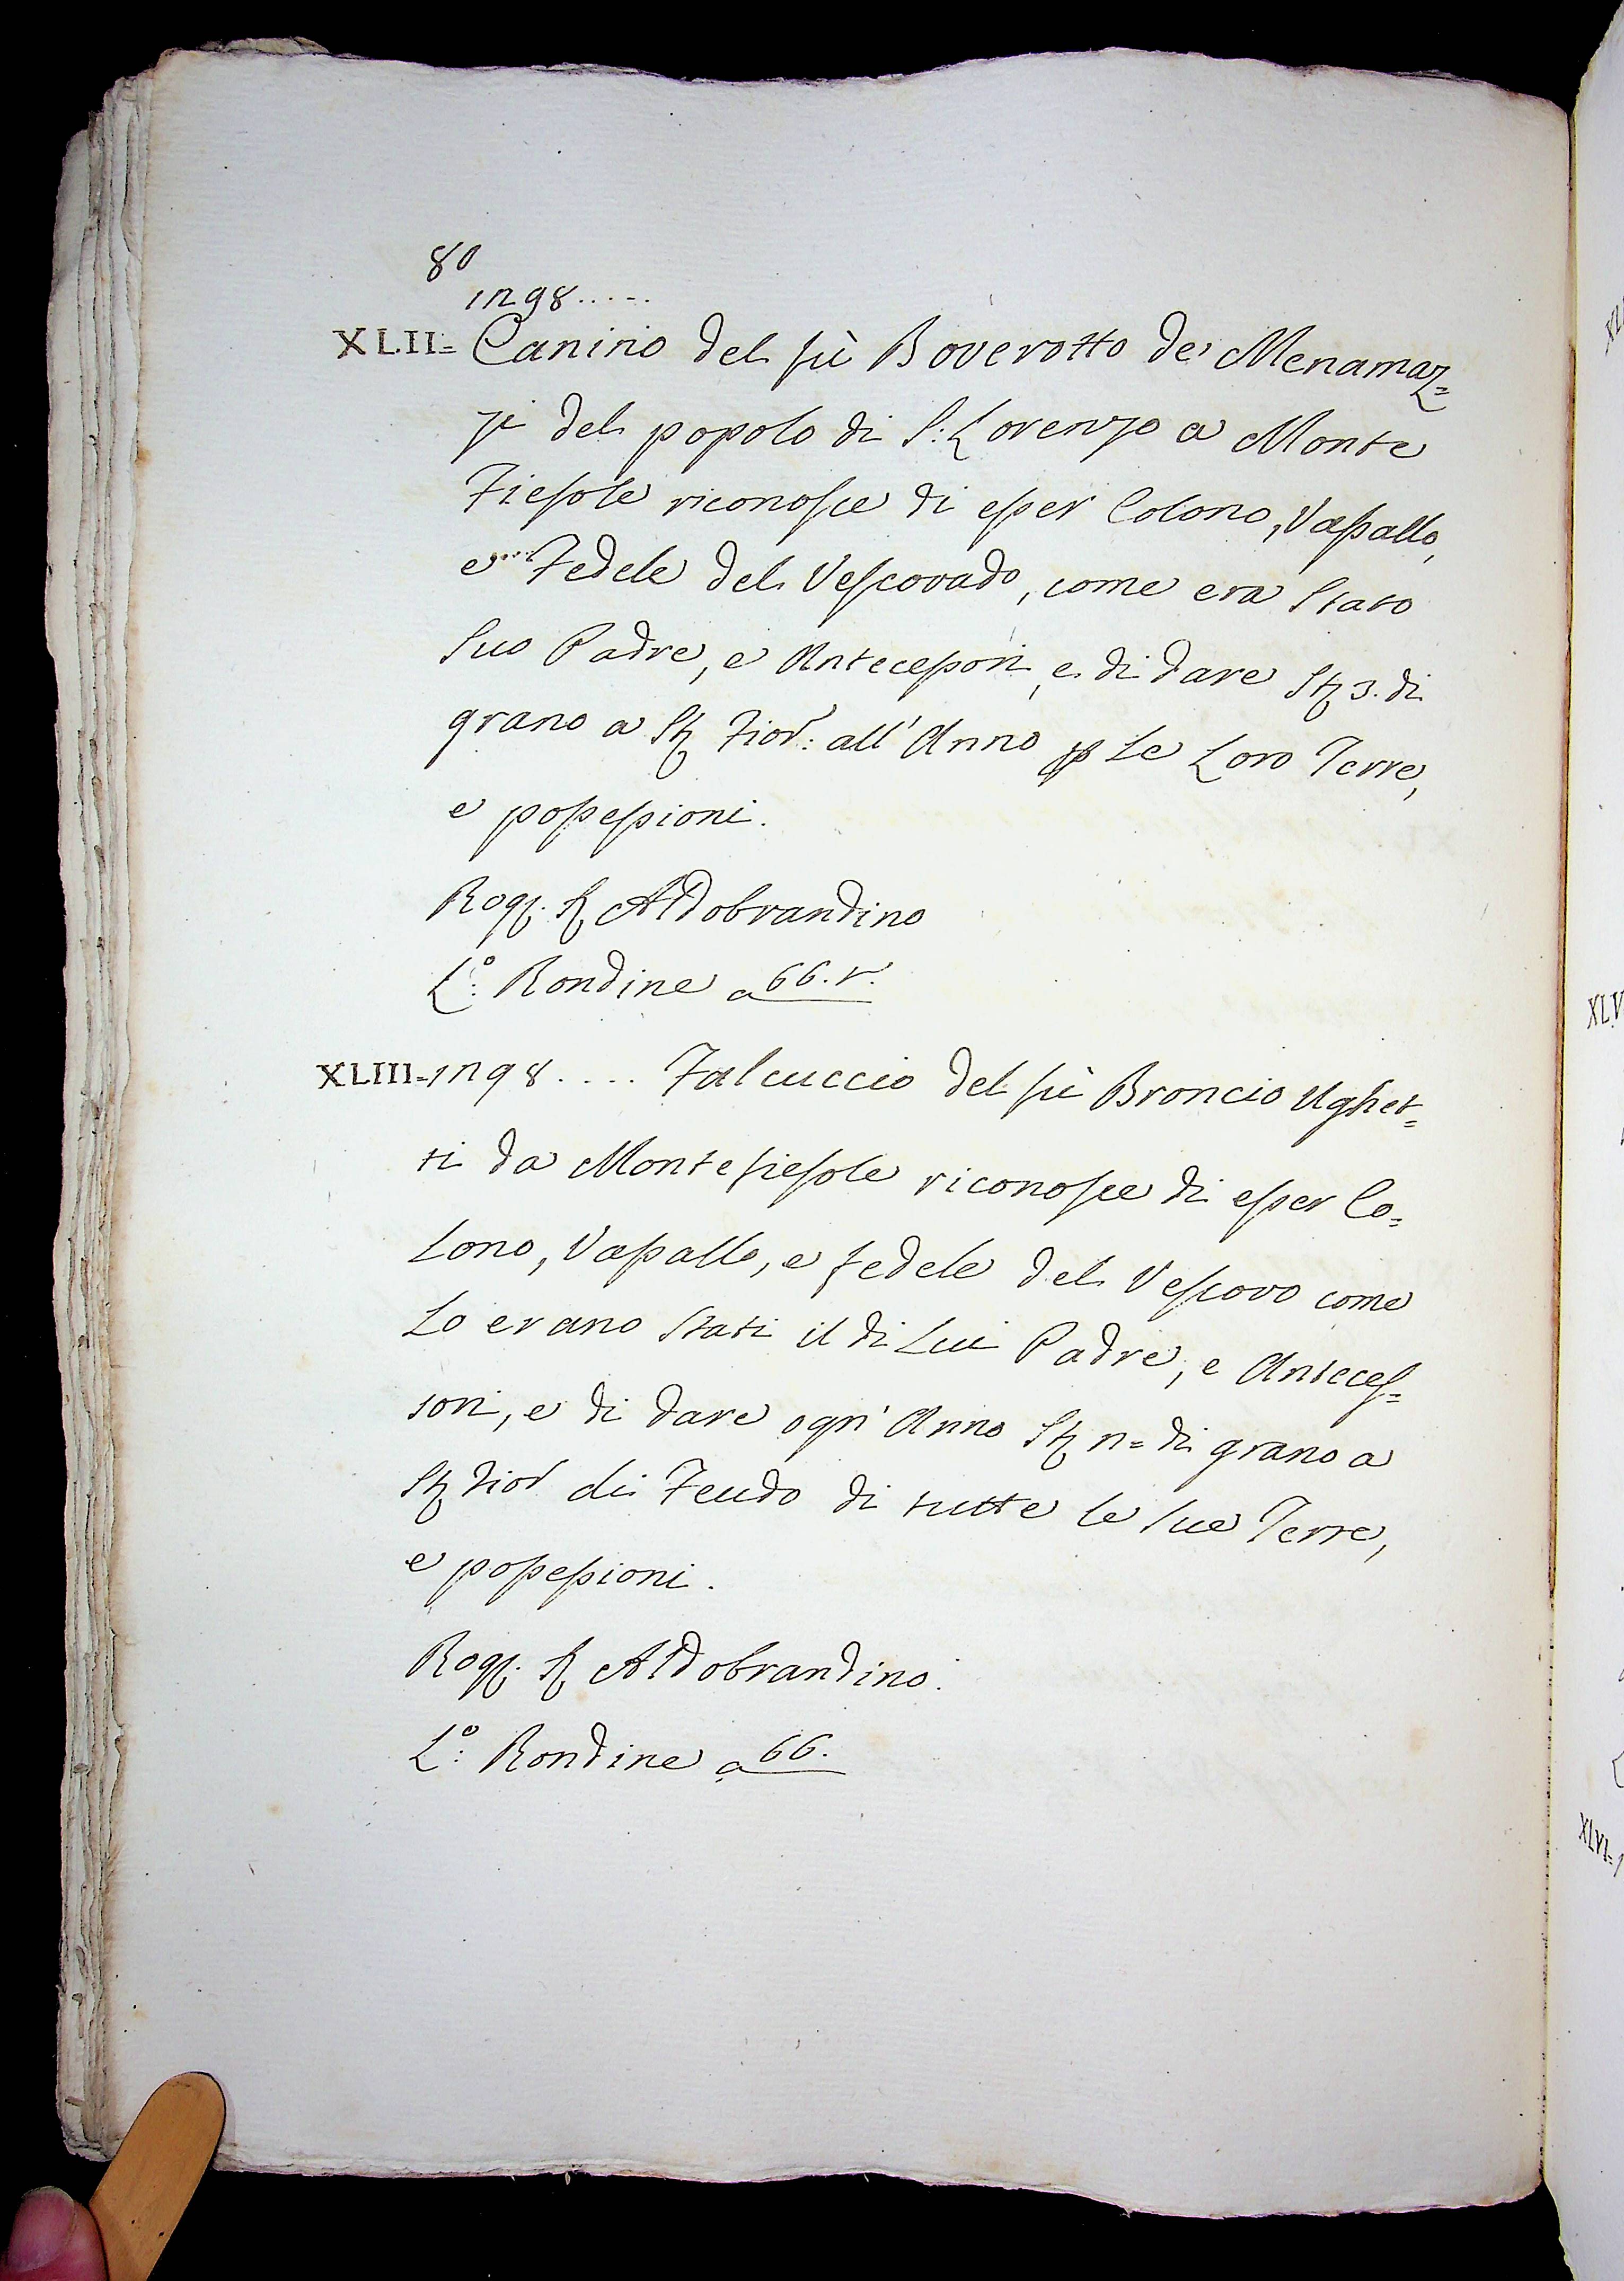 80
1298.....
XLII= Canino del fù Boverotto dei Menamaz=
zi del popolo di S: Lorenzo a Monte
Fiesole riconosce di esser Colono, Vassallo,
e Fedele del Vescovado, come era stato
suo Padre, e Antecessori, e di dare St 3. di
grano a St Fior: all'Anno p Le Loro Terre,
e possessioni.
Rog. S Aldobrandino
L.º: Rondine a 66. r.
XLIII=1298.... Falcuccio del fù Broncio Ughet=
ti da Montefiesole riconosce di esser Co=
Lono, Vassallo, e fedele del Vescovo come
Lo erano stati il di Lui Padre, e Anteces=
sori, e di dare ogn'Anno St 2= di grano a
St Fior di Feudo di tutte le sue Terre,
e possessioni.
Rog. S Aldobrandino.
L.º: Rondine a 66.